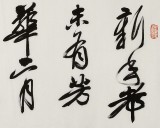 新年都
未有芳
華二月